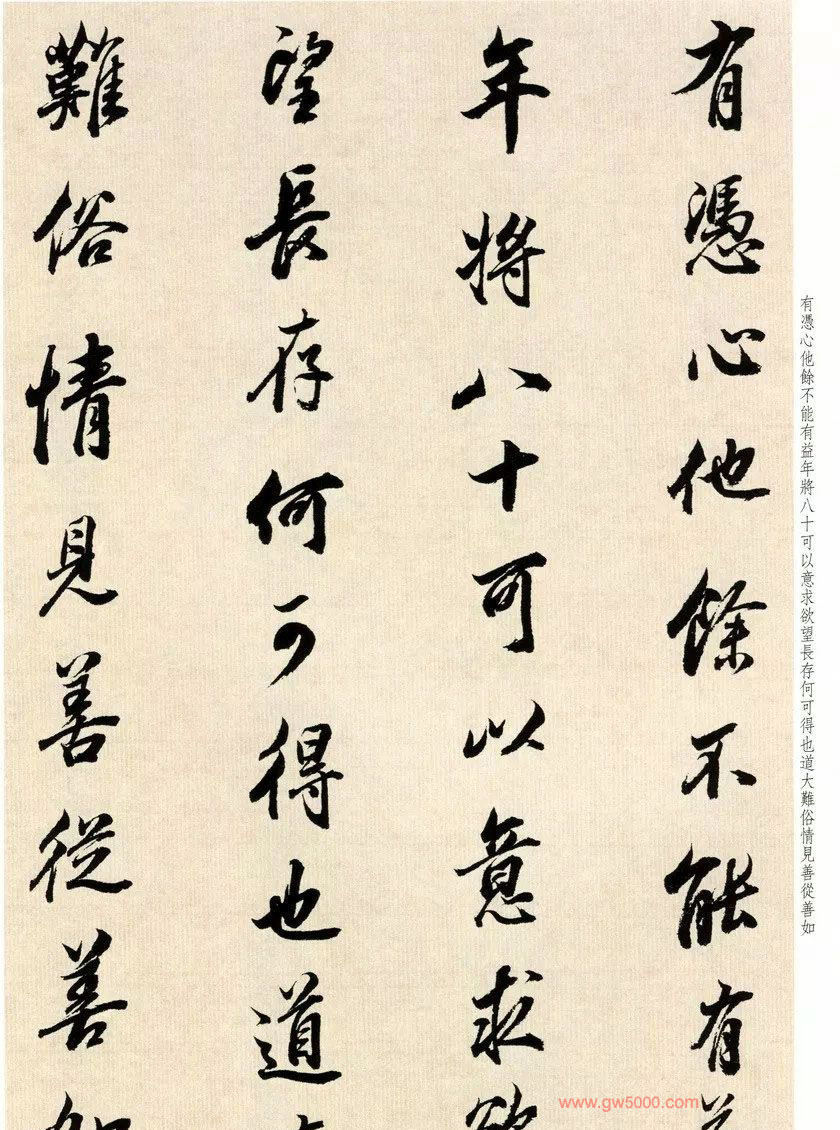 有憑心他餘不能有益
年將八十可以意求欲
望長存何可得也道大
難俗情見善從善如
有憑心他餘不能有益年將八十可以意求欲望長存何可得也道大難俗情見善從善如
www.gw5000.com